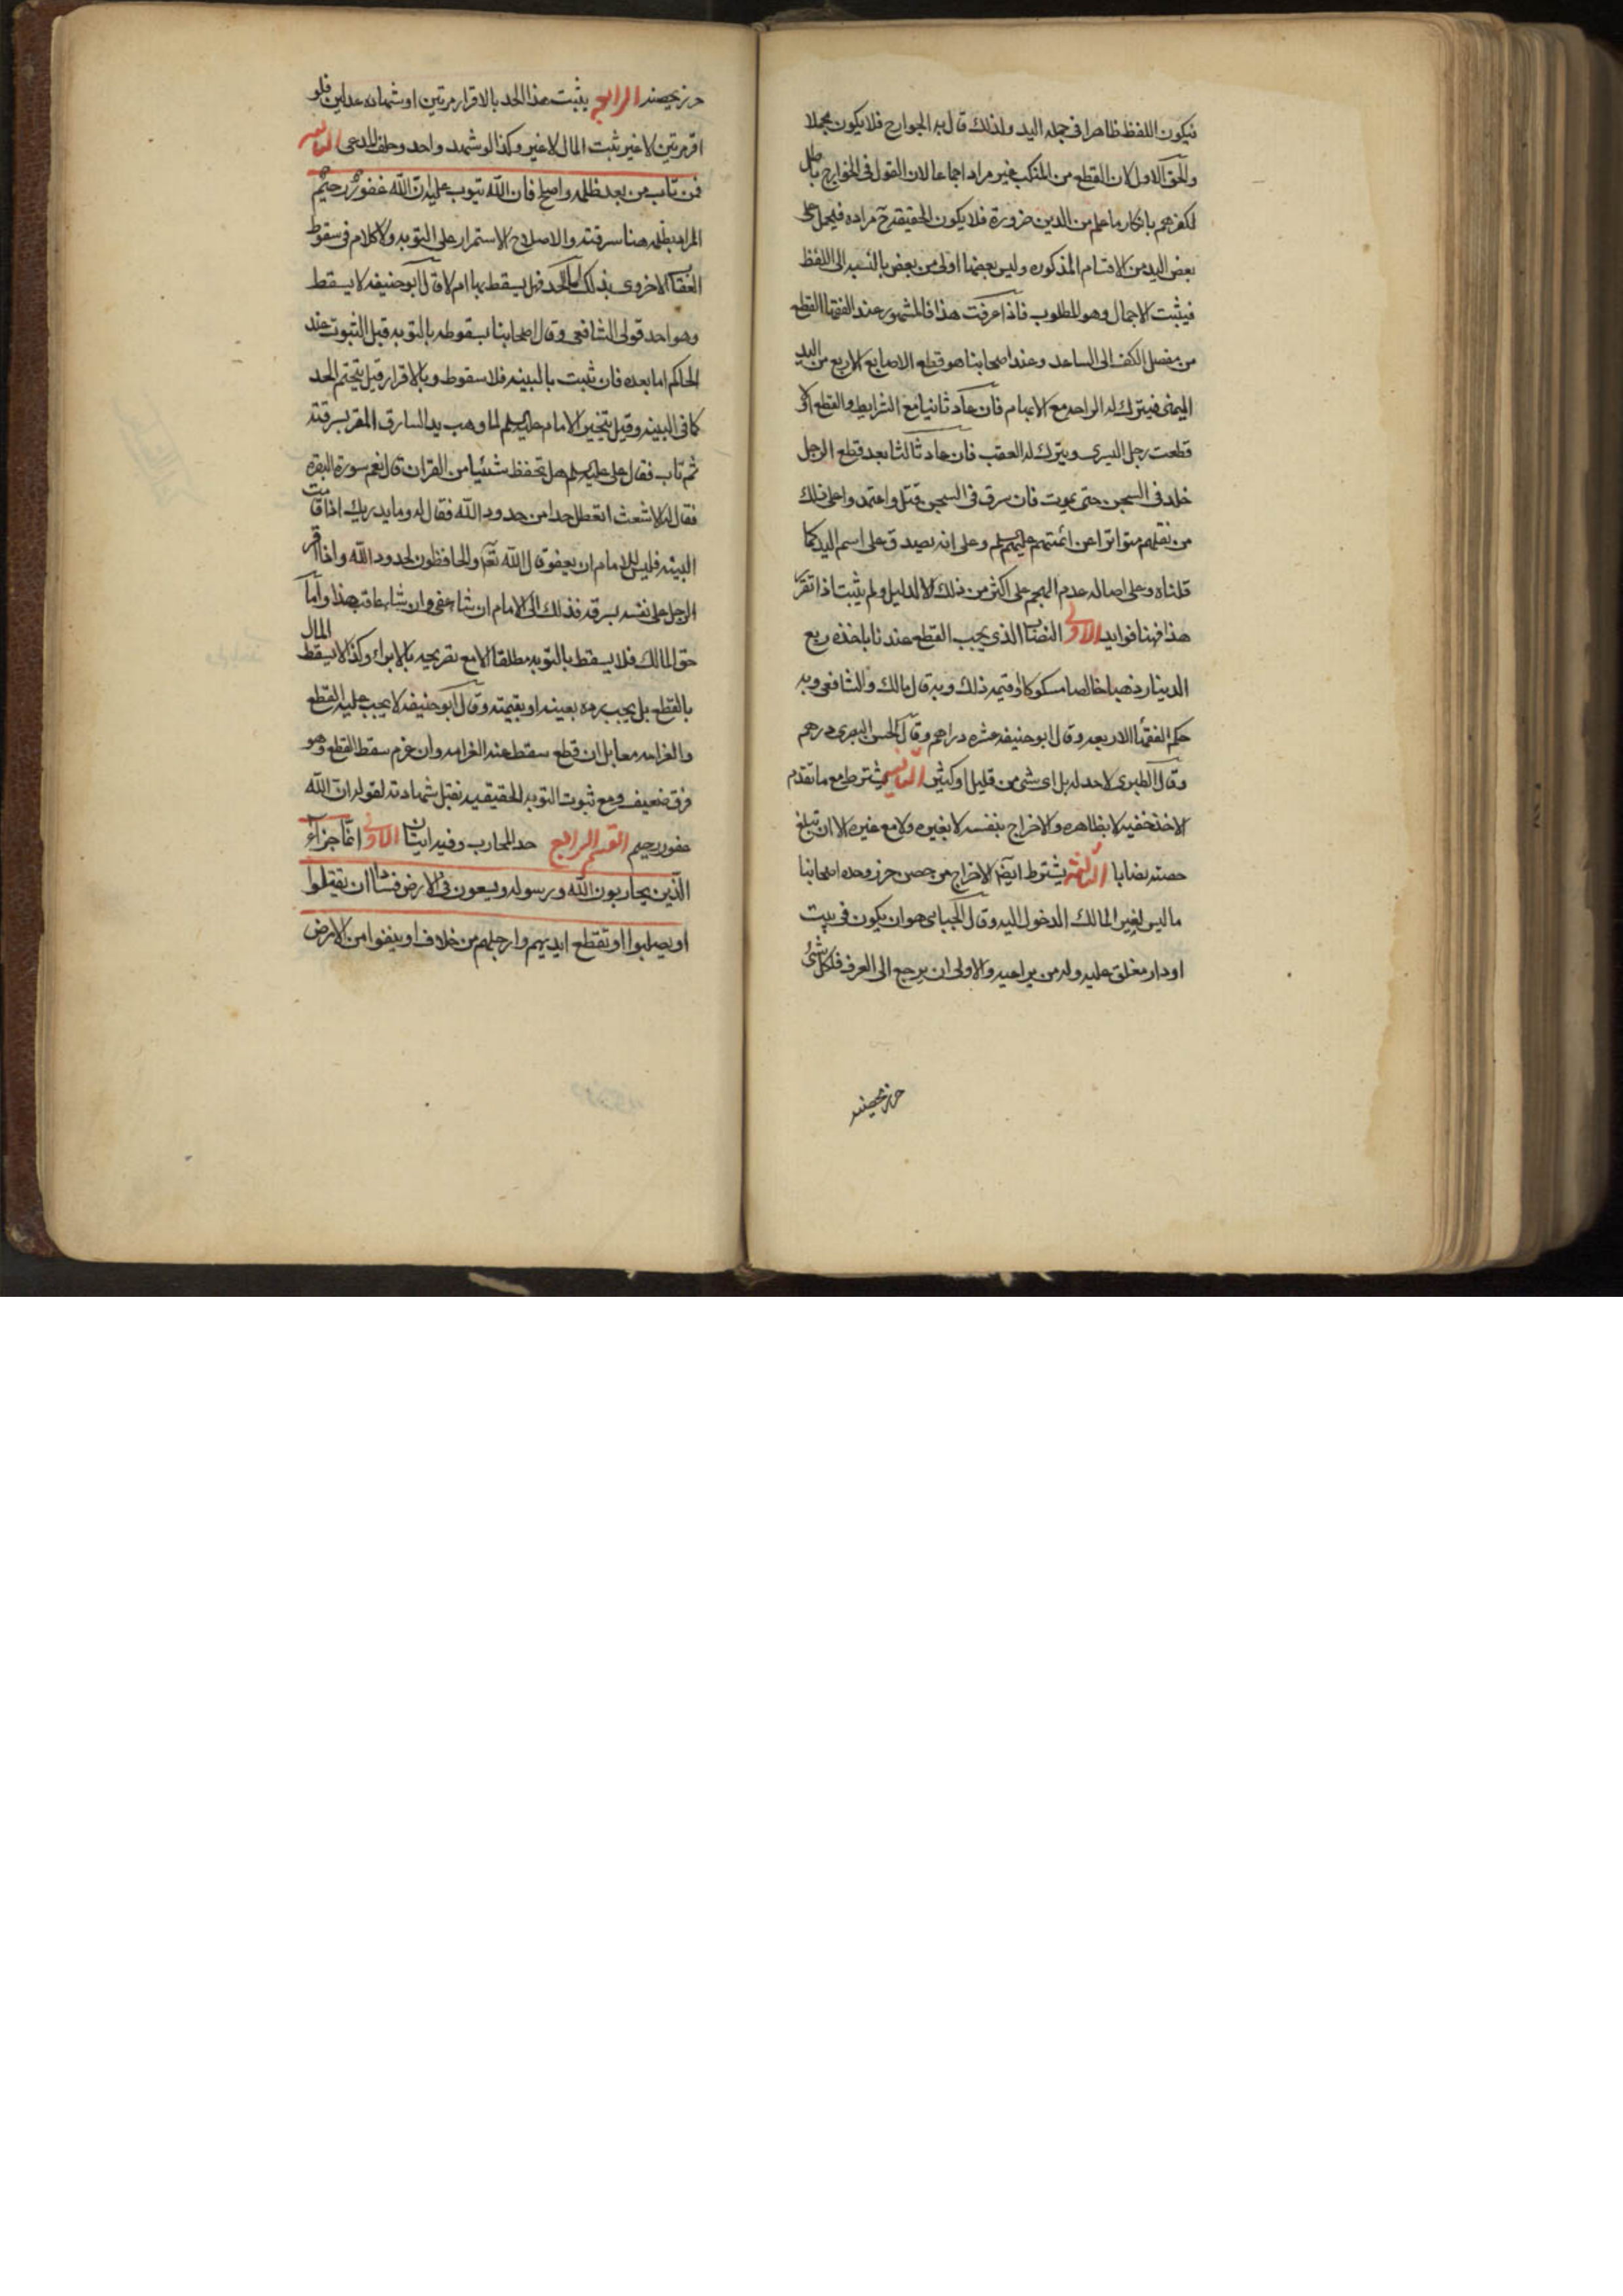 فيكون اللفظ ظاهرا في جملة اليد ولذلك قال به الخوارج فلا يكون مجملا
والحق الاول لان القطع من المنكب غير مراد اجماعا لان القول في الخوارج باطل
لكفرهم بانكار ما علم من الدين ضرورة فلا يكون الحقيقة ح مرادة فيحمل على
بعض اليد من الاقسام المذكوره وليس بعضها اولى من بعض بالنسبه الى اللفظ
فيثبت الاجمال وهو المطلوب فاذا عرفت هذا فالمشهور عند الفقها القطع
من مفصل الكف الى الساعد وعند اصحابنا هو قطع الاصابع الاربع من اليد
اليمنى فيترك له الراحه مع الابهام فان عاد ثانيا مع الشرايط والقطع الاو
قطعت رجل اليسرى ويترك له العقب فان عاد ثالثا بعد قطع الرجل
خلد في السجن حتى يموت فان سرق في السجن قتل واعتمدوا على ذلك
من نقلهم متواترا عن ائمتهم عليهم السلم وعلى انه يصدق على اسم اليد كما
قلناه وعلى اصاله عدم التهجم على اكثر من ذلك الا لدليل ولم يثبت اذا تقرر
هذا فهنا فوايد الاولى النصاب الذي يجب القطع عندنا باخذه ربع
الدينار ذهبا خالصا مسكوكا او قيمة ذلك وبه قال مالك والشافعي وبه
حكم الفقها الاربعه وقال ابو حنيفه عشره دراهم وقال الحسن البصرى درهم
وقال الطبري لا حد له بل اي شي من قليل او كثير الثانيه يشترط مع ما تقدم
الاخذ خفيه لا بظاهره والاخراج بنفسه لا بغيره ولا مع غيره الا ان تبلغ
حصته نصابا الثالثه يشترط ايضا الاخراج من حصن حرز وحده اصحابنا
ما ليس لغير المالك الدخول اليه وقال الجبائى هو ان يكون في بيت
او دار مغلق عليه وله من يراعيه والاولى ان يرجع الى العرف فلكل شئ
حرز يحصنه
حرز يحصنه الرابع يثبت هذا الحد بالاقرار مرتين او شهاده عدلين فلو
اقر مرتين لا غير ثبت المال لا غير وكذا لو شهد واحد وحلف المدعي الثانيه
فمن تاب من بعد ظلمه واصلح فان الله يتوب عليه ان الله غفور رحيم
المراد بظلمه هنا سرقته والاصلاح الاستمرار على التوبه ولا كلام في سقوط
العقاب الاخروى بذلك اما الحد فهل يسقط بها ام لا قال ابو حنيفه لا يسقط
وهو احد قولي الشافعي وقال اصحابنا بسقوطه بالتوبه قبل الثبوت عند
الحاكم اما بعده فان ثبت بالبينه فلا سقوط وبالاقرار قيل يتحتم الحد
كما في البينه وقيل يتخير الامام عليه السلم لما وهب يد السارق المقر بسرقته
ثم تاب فقال على عليه السلم هل تحفظ شيئا من القران قال نعم سورة البقره
فقال له الاشعث اتعطل حدا من حدود الله فقال له وما يدريك اذا قامت
البينه فليس للامام ان يعفو قال الله تعم والحافظون لحدود الله واذا اقر
الرجل على نفسه بسرقه فذلك الى الامام ان شا عفى وان شا عاقب هذا واما
حق المالك فلا يسقط بالتوبه مطلقا الا مع تصريحه بالابراء وكذا لا يسقط المال
بالقطع بل يجب رده بعينه او بقيمته وقال ابو حنيفه لا يجب عليه القطع
والغرامه معا بل ان قطع سقط عنه الغرامه وان غرم سقط القطع وهو
فرق ضعيف ومع ثبوت التوبه الحقيقيه نقبل شهادته لقوله ان الله
غفور رحيم القسم الرابع حد المحارب وفيه ايتان الاولى انما جزاء
الذين يحاربون الله ورسوله ويسعون في الارض فسادا ان يقتلوا
او يصلبوا او تقطع ايديهم وارجلهم من خلاف او ينفوا من الارض